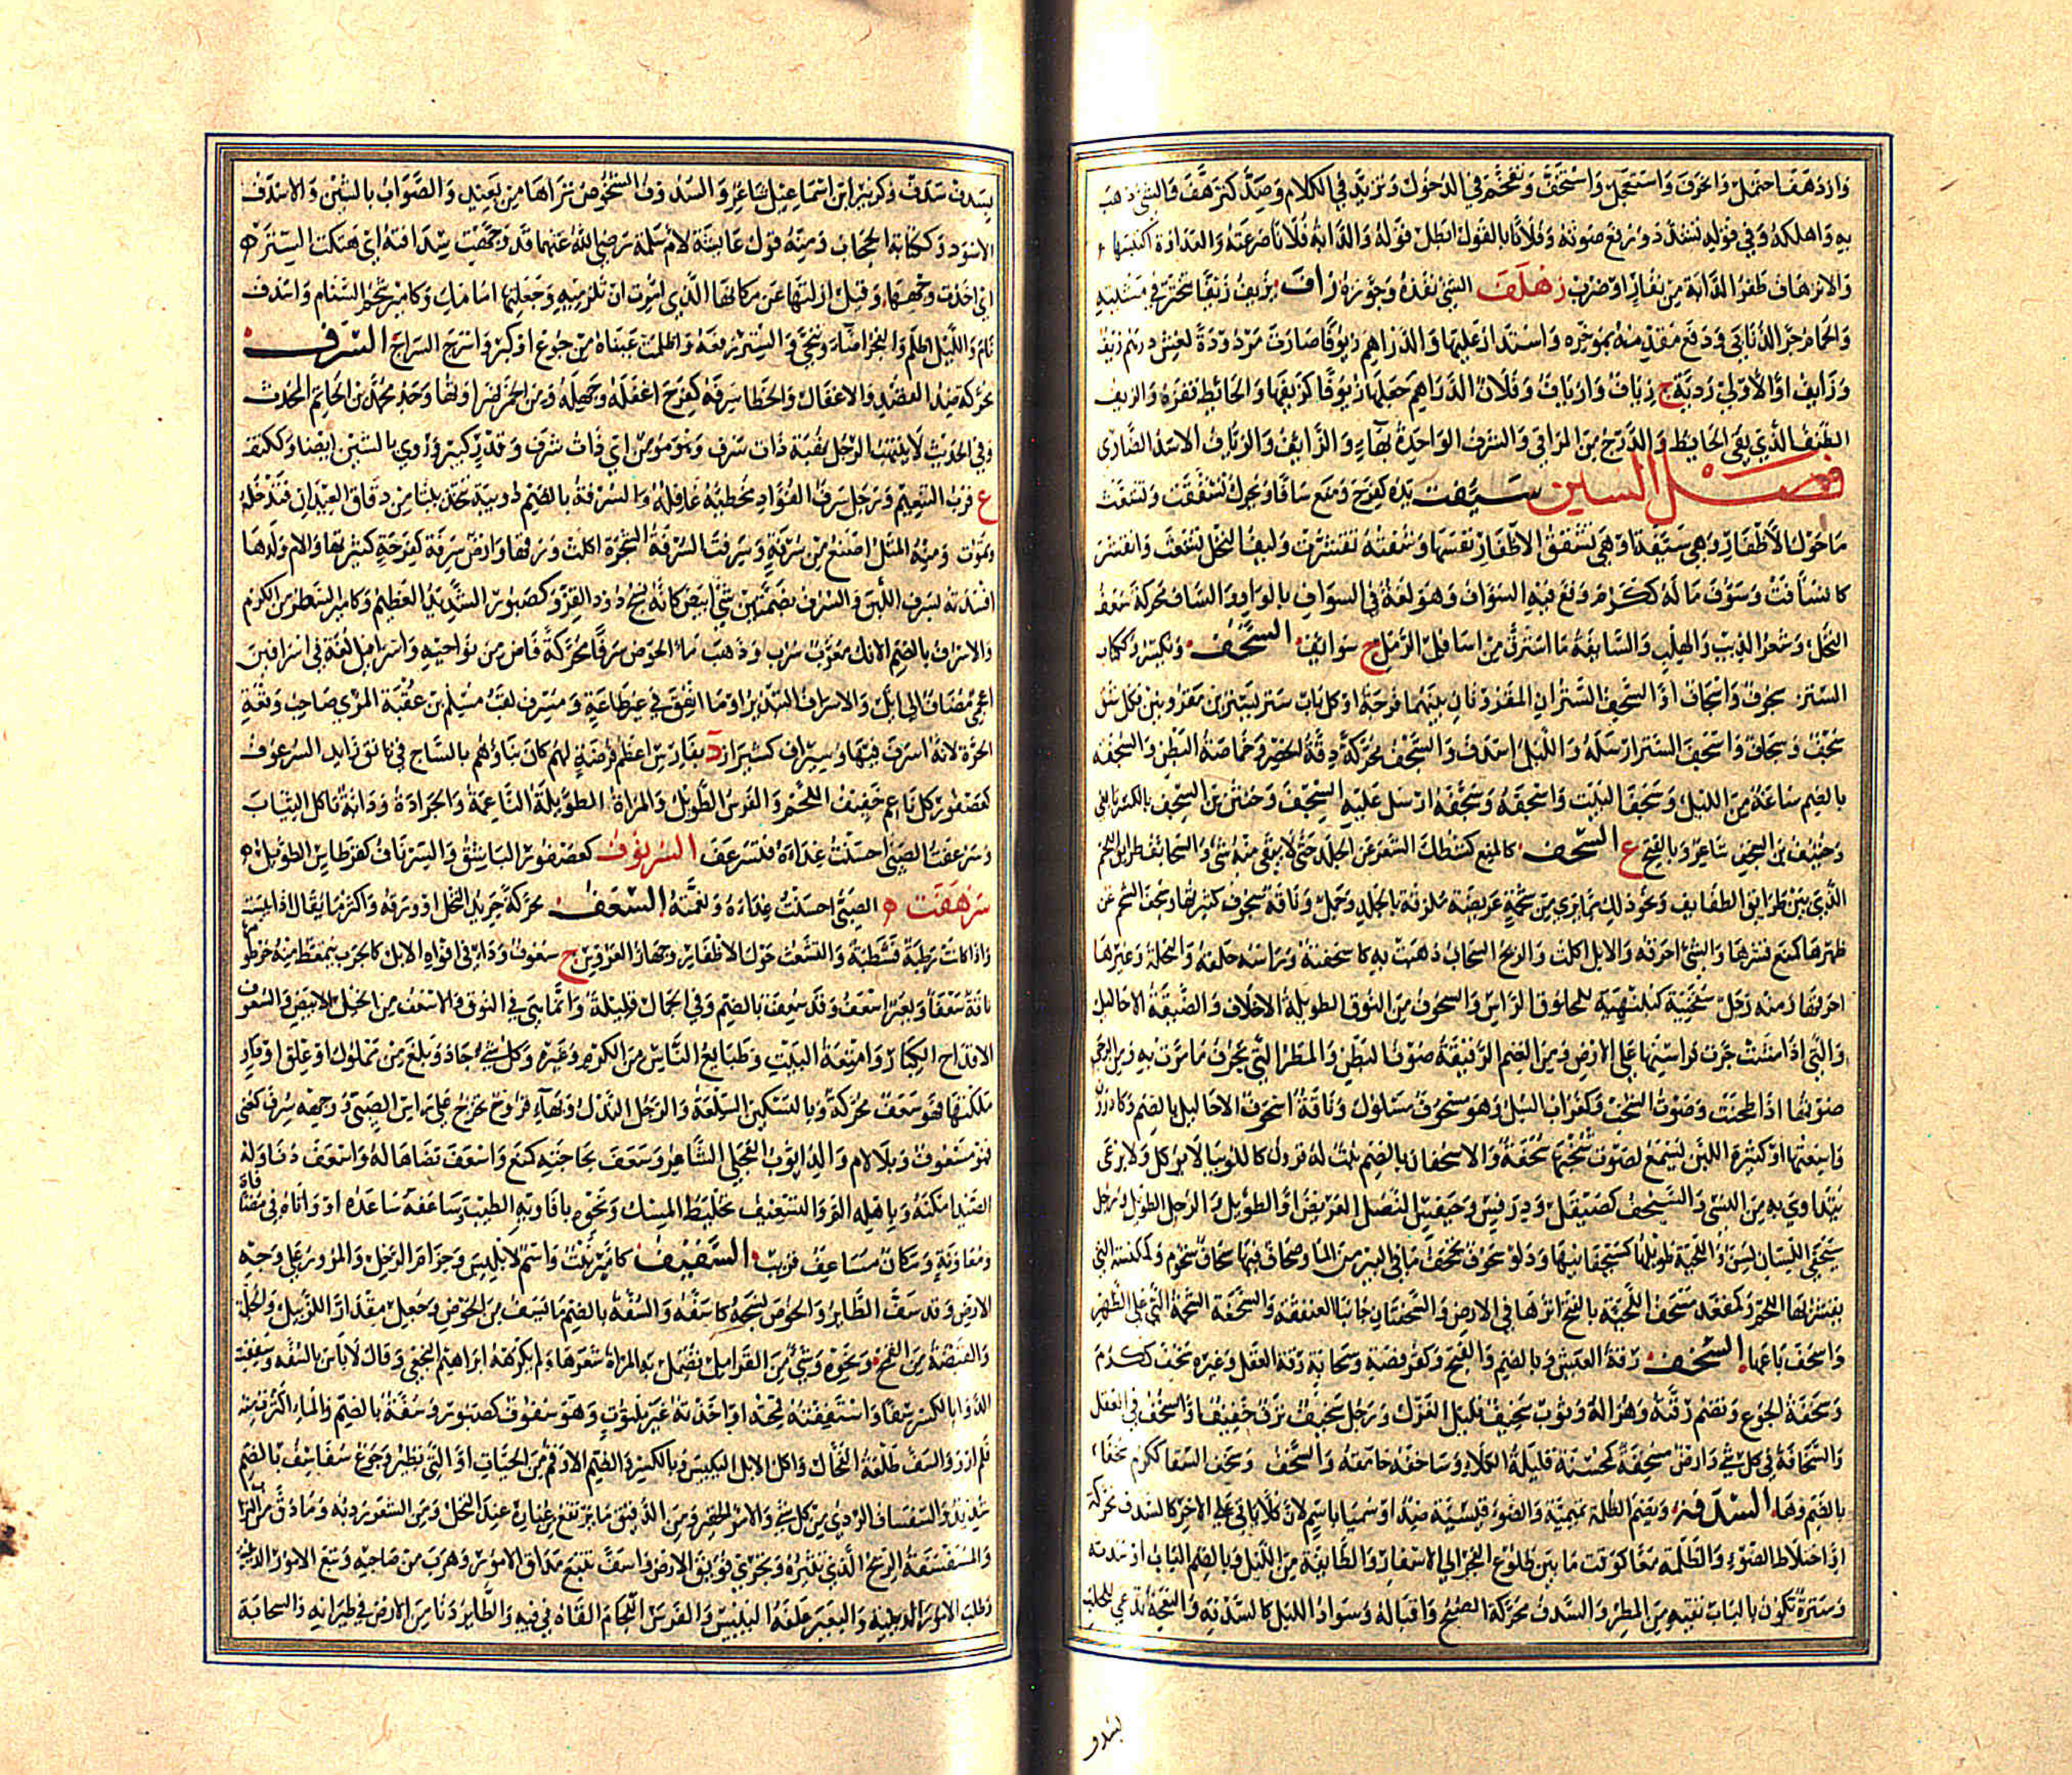 وازدهف احتمل وانحرف واستعجل واستخف وتقحم في الدخول وتزيد في الكلام وصد كزهف فالشئ ذهب
به واهلكه وفي قوله شدد ورفع صوته وفلانا بالقول ابطل قوله والدابة فلانا صرعته والعداوة اكتسبها
والازهاف طفو الدابة من نفار او ضرب زهلف الشئ نفذه وجوزه زاف يزيف زيفا تبختر في مشيته
والحمام جر الذنابى ودفع مقدمه بمؤخره واستدار عليها والدراهم زيوفا صارت مردودة لغش درهم زيف
وزايف او الاولى ردية ج زياف وازياف وفلان الدراهم جعلها زيوفا كزيفها والحائط قفزه والزيف
الطنف الذي يقي الحائط والدرج من المراقي والشرف الواحدة بهاء والزايف والزياف الاسد الضاري
فصل السين سئفت يده كفرح ومنع سافا ويحرك تشققت وتشعث
ما حول الاظفار وهي سئفة او هي تشقق الاظفار نفسها وشفته تقشرت وليف النخل تشعث وانقشر
كانسأفت وسؤف ماله ككرم وقع فيه السؤاف وهو لغة في السواف بالواو والساف محركة سعف
النخل وشعر الذنب والهلب والسائفة ما استرق من اسافل الرمل ج سوائف السجف ويكسر وككتاب
الستر ج سجوف واسجاف او السجف الستران المقرونان بينهما فرجة او كل باب ستر بسترين مقرونين فكل شق
سجف وسجاف واسجف الستر ارسله والليل اسدف والسجف محركة دقة الخصر وخماصة البطن والسجفة
بالضم ساعة من الليل وسجف البيت واسجفه وسجفه ارسل عليه السجف وحنتف بن السجف بالكسر تابعي
وحنيف بن السجف شاعر وبالفتح ع السحف كالمنع كشطك الشعر عن الجلد حتى لا يبقى منه شئ والسحائف طرائق الشحم
الذي بين طرائق الطفاطف ونحو ذلك مما يرى من شحمة عريضة ملزقة بالجلد وجمل وناقة سحوف كثيرتها وسحف الشحم عن
ظهرها كمنع قشرها والشئ احرقه والابل اكلت والريح السحاب ذهبت به كاسحفته وراسه حلقه والنخلة وغيرها
احرقها ومنه رجل سحفنية كبلهنية للمحلوق الراس والسحوف من النوق الطويلة الاخلاف والضيقة الاحاليل
والتي اذا مشت جرت فراسنها على الارض ومن الغنم الرقيقة صوف البطن والمطر التي تجرف ما مرت به ومن الرحى
صوتها اذا طحنت وصوت الشخب وكغراب السل وهو مسحوف مسلول وناقة اسحوف الاحاليل بالضم وكادرون
واسعتها او كثيرة اللبن يسمع لصوت شخبها سحفة والاسحفان بالضم نبت له قرون كاللوبيا لا يوكل ولا يرعى
يتداوى به من النسى والسيحف كصيقل ودرفس وحيفس النصل العريض او الطويل والرجل الطويل ورجل
سيحفي اللسان لسن واللحية طويلها كسيحفانيها ودلو سحوف تجحف ما في البير من الماء وصحاف فيها سحاف شحوم وكمكنسة التي
يقشر بها اللحم وكمقعد مسحف الحية بالفتح اثرها في الارض والسحفتان جانبا العنفقة والسحفة الشحمة التي على الظهر
واسحف باعها السخف رقة العيش وبالضم والفتح وكقرفصة وسحابة رقة العقل وغيره سخف ككرم
وسخفة الجوع وتضم رقته وهزاله وثوب سخيف قليل الغزل ورجل سخيف نزق خفيف او السخف في العقل
والسخافة في كل شئ وارض مسخفة كمحسنة قليلة الكلاء وساخفه حامقه والسخف وسخف السقا ككرم سخفا
بالضم وها السدفة ويضم الظلمة تميمية والضوء قيسية ضد او سميا باسم لان كلا ياتي على الاخر كالسدف محركة
او اختلاط الضوء والظلمة معا كوقت ما بين طلوع الفجر الى الاسفار والطائفة من الليل وبالضم الباب او سدته
وسترة تكون بالباب تقيه من المطر والسدف محركة الصبح واقباله وسواد الليل كالسدفة والنعجة تدعى للحلب
بسدو
بسدف سدف وكزبير ابن اسماعيل شاعر والسدوف الشخوص تراها من بعيد والصواب بالشين والاسدف
الاسود وككتابة الحجاب ومنه قول عائشة لام سلمة رضي الله عنهما قد وجهت سدافته اي هتكت الستر
اي اخذت وجهها وقيل ازلتها عن مكانها الذي امرت ان تلزميه وجعلتها امامك وكامير شحم السنام واسدف
نام والليل اظلم والفجر اضاء وتنحى والستر رفعه واظلمت عيناه من جوع او كبر واسرج السراج السرف
محركة ضد القصد والاغفال والخطا سرفه كفرح اغفله وجهله ومن الخمر ضراوتها وجد محمد بن حاتم المحدث
وفي الحديث لا ينتهب الرجل نهبة ذات سرف وهو مومن اي ذات شرف وقدر كبير وروي بالشين ايضا وككتف
ع قرب التنعيم ورجل سرف الفؤاد مخطئه غافله والسرفة بالضم دويبة تتخذ بيتا من دقاق العيدان فتدخله
وتموت ومنه المثل اصنع من سرفة وسرفت السرفة الشجرة اكلت ورقها وارض سرفة كفرحة كثيرتها والام ولدها
افسدته بسرف اللبن والسرف بضمتين شئ ابيض كانه نسج دود القز وكصبور الشديد العظيم وكامير السطر من الكرم
والاسرف بالضم الانك معرب سرب وذهب ماء الحوض سرفا محركة فاض من نواحيه واسرافيل لغة في اسرافين
اعجمي مضاف الى ايل والاسراف التبذير او ما انفق في غير طاعة ومسرف لقب مسلم بن عقبة المري صاحب وقعة
الحرة لانه اسرف فيها وسيراف كشيراز د بفارس اعظم فرضة لهم كان بناؤهم بالساج في تانق زايد السرعوف
كعصفور كل ناعم خفيف اللحم والفرس الطويل والمراة الطويلة الناعمة والجرادة ودابة تاكل الثياب
وسرعفت الصبي احسنت غذاءه فتسرعف السرنوف كعصفور الباشق والسرناف كقرطاس الطويل
سرهفت الصبي احسنت غذاءه ونعمته السعف محركة جريد النخل او ورقه واكثر ما يقال اذا يبست
واذا كانت رطبة فشطبة والتشعث حول الاظفار وجهاز العروس ج سعوف وداء في افواه الابل كالجرب يتمعط منه خرطوم
ناقة سعفاء وبعير اسعف وقد سعف بالضم وفي الجمال قليلة وانما هي في النوق والاسعف من الخيل الابيض والسعوف
الاقداح الكبار وامتعة البيت وطبايع الناس من الكرم وغيره وكل شئ جاد وبلغ من مملوك او علق او دار
ملكتها فهو سعف محركة وبالتسكين السلعة والرجل النذل وبهاء قروح تخرج على راس الصبي ووجهه سعف كعنى
فهو مسعوف وبلا لام والد ايوب العجلي الشاعر وسعف بحاجته كمنع واسعف قضاها له واسعف دنا وله
الصيد امكنه وباهله الم والتسعيف تخليط المسك ونحوه بافاويه الطيب وساعفه ساعده او واتاه في مصافاة
ومعاونة ومكان مساعف قريب السفيف كامير نبت واسم لابليس وحزام الرحل والمرور على وجه
الارض وقد سف الطائر والخوص نسجه كاسفه والسفة بالضم ما يسف من الخوص وجعل مقدار الزبيل والجلة
والقبضة من القمح ونحوه وشئ من القراميل تصل به المراة شعرها ولم يكرهه ابراهيم النخعي وقال لا باس بالسفة وسففت
الدوا بالكسر سفا واستففته قمحته او اخذته غير ملتوت وهو سفوف كصبور وسفة بالضم والماء اكثرت منه
فلم ارو والسف طلعة الفحال واكل الابل اليبيس وبالكسر والضم الارقم من الحيات او التي تطير وجوع سفاسف بالضم
شديد والسفساف الردئ من كل شئ والامر الحقير ومن الدقيق ما يرتفع من غباره عند النخل ومن الشعر رديه وما دق من التراب
والمسفسفة الريح الذي تثيره وتجري فويق الارض واسف تتبع مداق الامور وهرب من صاحبه وتتبع الامور الدنية
وطلب الامور الدنية والبعير علفه اليبيس والفرس اللجام القاه في فيه والطائر دنا من الارض في طيرانه والسحابة